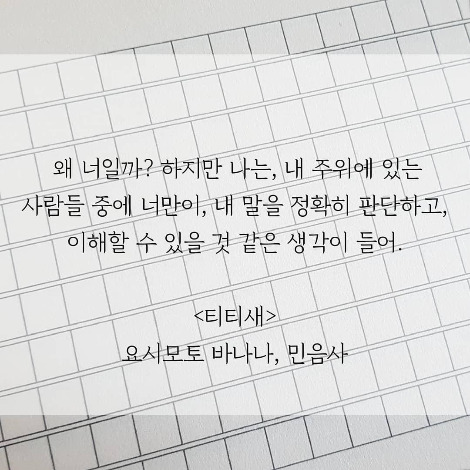 왜 너일까? 하지만 나는, 내 주위에 있는
사람들 중에 너만이, 내 말을 정확히 판단하고,
이해할 수 있을 것 같은 생각이 들어.
<티티새>
요시모토 바나나, 민음사